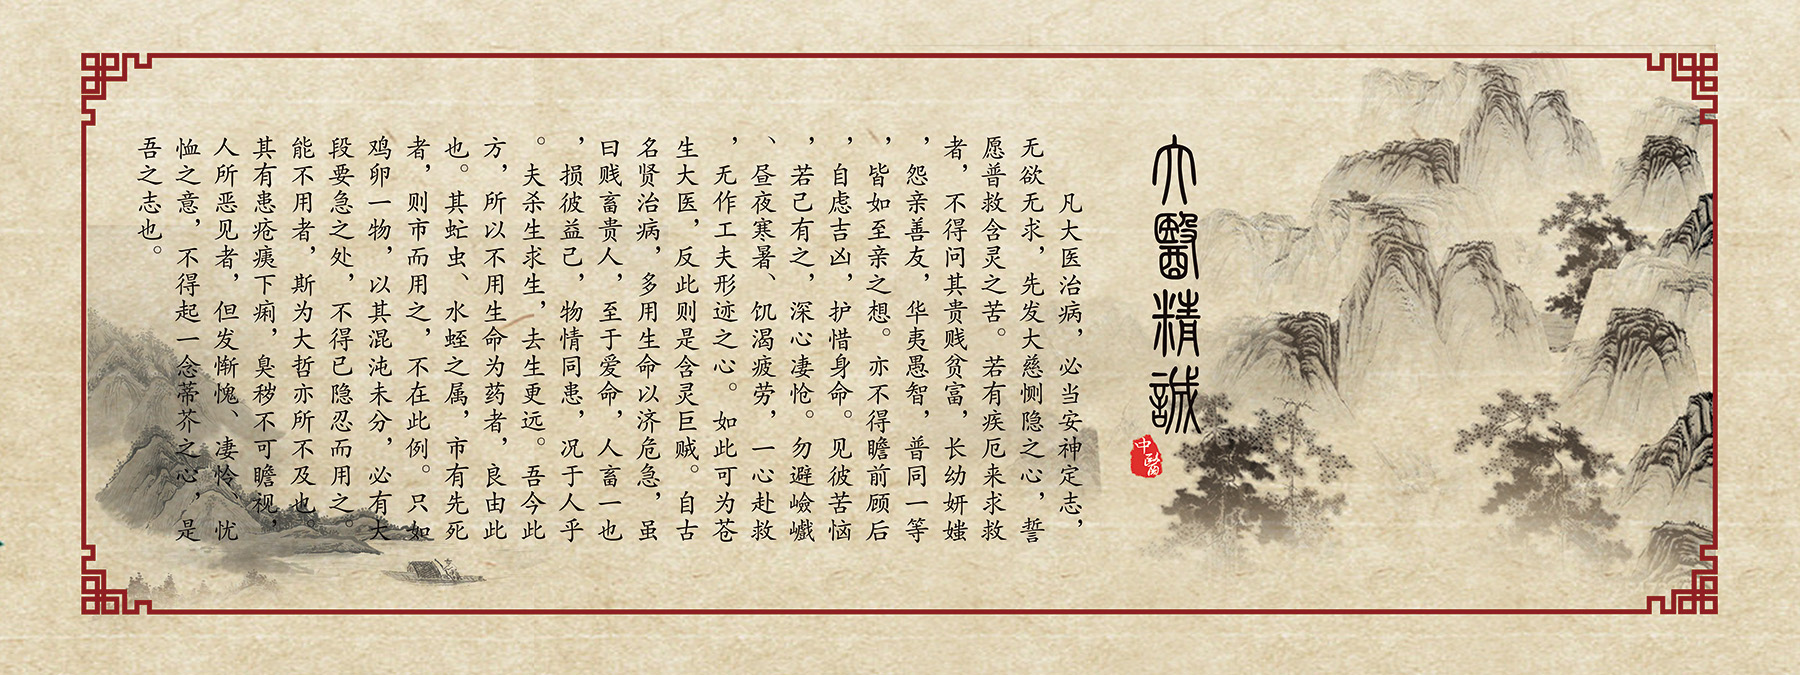 大醫精誠
中醫
凡大医治病，必当安神定志，
无欲无求，先发大慈恻隐之心，誓
愿普救含灵之苦。若有疾厄来求救
者，不得问其贵贱贫富，长幼妍媸
，怨亲善友，华夷愚智，普同一等
，皆如至亲之想。亦不得瞻前顾后
，自虑吉凶，护惜身命。见彼苦恼
，若己有之，深心凄怆。勿避崄巇
、昼夜寒暑、饥渴疲劳，一心赴救
，无作工夫形迹之心。如此可为苍
生大医，反此则是含灵巨贼。自古
名贤治病，多用生命以济危急，虽
曰贱畜贵人，至于爱命，人畜一也
，损彼益己，物情同患，况于人乎
。夫杀生求生，去生更远。吾今此
方，所以不用生命为药者，良由此
也。其虻虫、水蛭之属，市有先死
者，则市而用之，不在此例。只如
鸡卵一物，以其混沌未分，必有大
段要急之处，不得已隐忍而用之。
能不用者，斯为大哲亦所不及也。
其有患疮痍下痢，臭秽不可瞻视，
人所恶见者，但发惭愧、凄怜、忧
恤之意，不得起一念蒂芥之心，是
吾之志也。